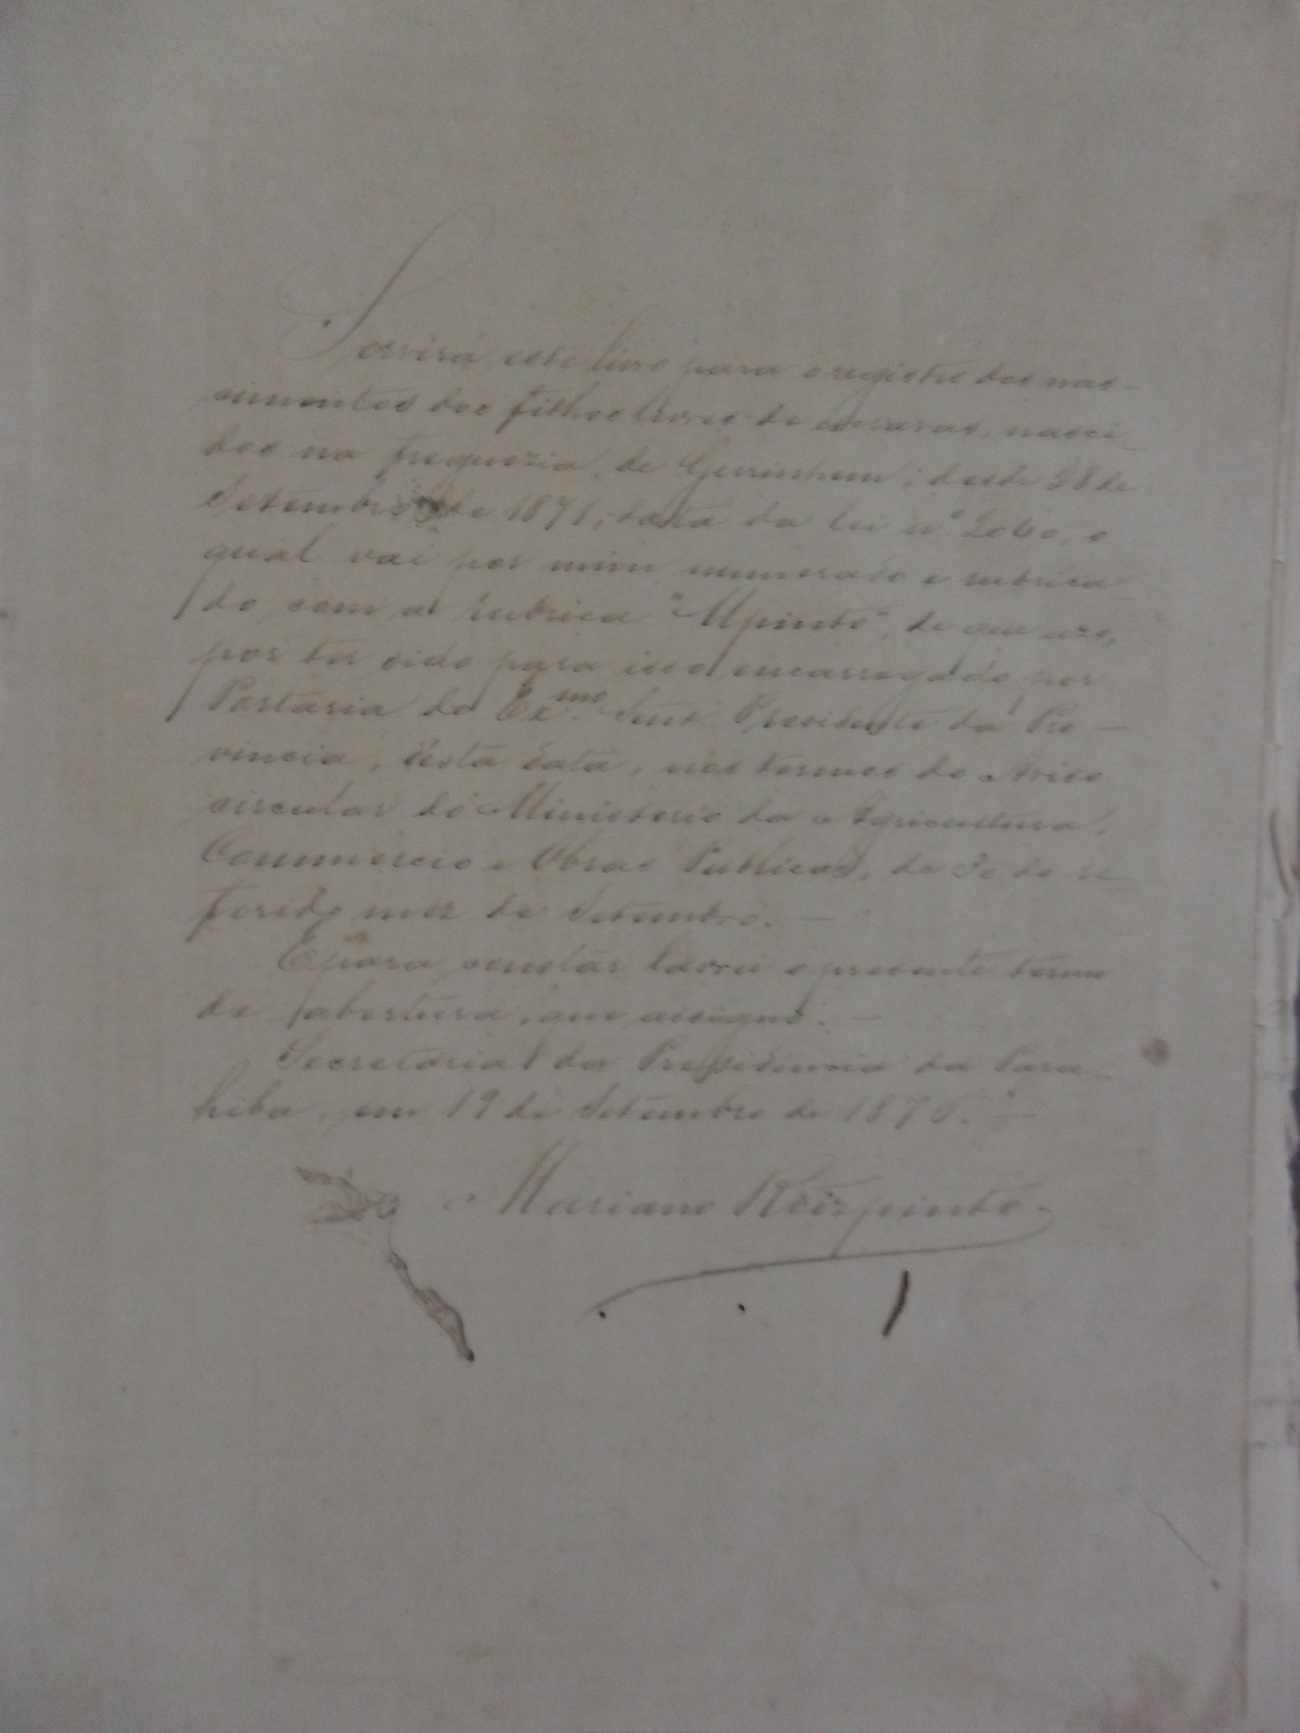 Servirá este livro para o registro dos nas-
cimentos dos filhos livres de escravas, nasci-
dos na freguezia de Gurinhem; desde 28 de
Setembro de 1871, data da lei nº 2040, o
qual vai por mim numerado e rubrica-
do com a rubrica "Mpinto", de que uzo,
por ter sido para isso encarregado por
Portaria do Exmo. Snr. Presidente da Pro-
vincia, desta data, nos termos do Aviso
circular do Ministerio da Agricultura,
Commercio e Obras Publicas, de 30 do re-
ferido mez de Setembro.—
E para constar lavrei o presente termo
de abertura, que assigno.—
Secretaria da Presidencia da Para-
hiba, em 19 de Setembro de
Mariano Reiz pinto